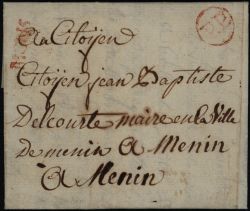 Au Citoyen
Citoyen jean Baptiste
Delcourte maire en la Ville
De menin A Menin
A Menin